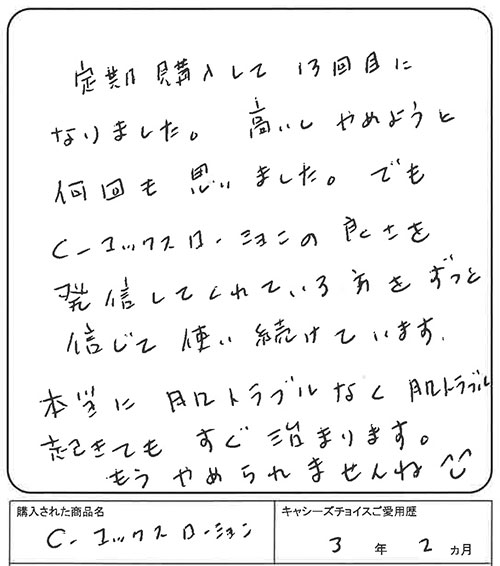 定期購入して 13回目に
なりました。 高いし やめようと
何回も 思いました。でも
C-エックスローションの良さを
発信してくれている方をずっと
信じて 使い続けています。
本当に 肌トラブルなく 肌トラブル
起きても すぐ 治まります。
もう やめられませんね
購入された商品名
C-エックスローション
キャシーズチョイスご愛用歴
3 年 2 ヵ月